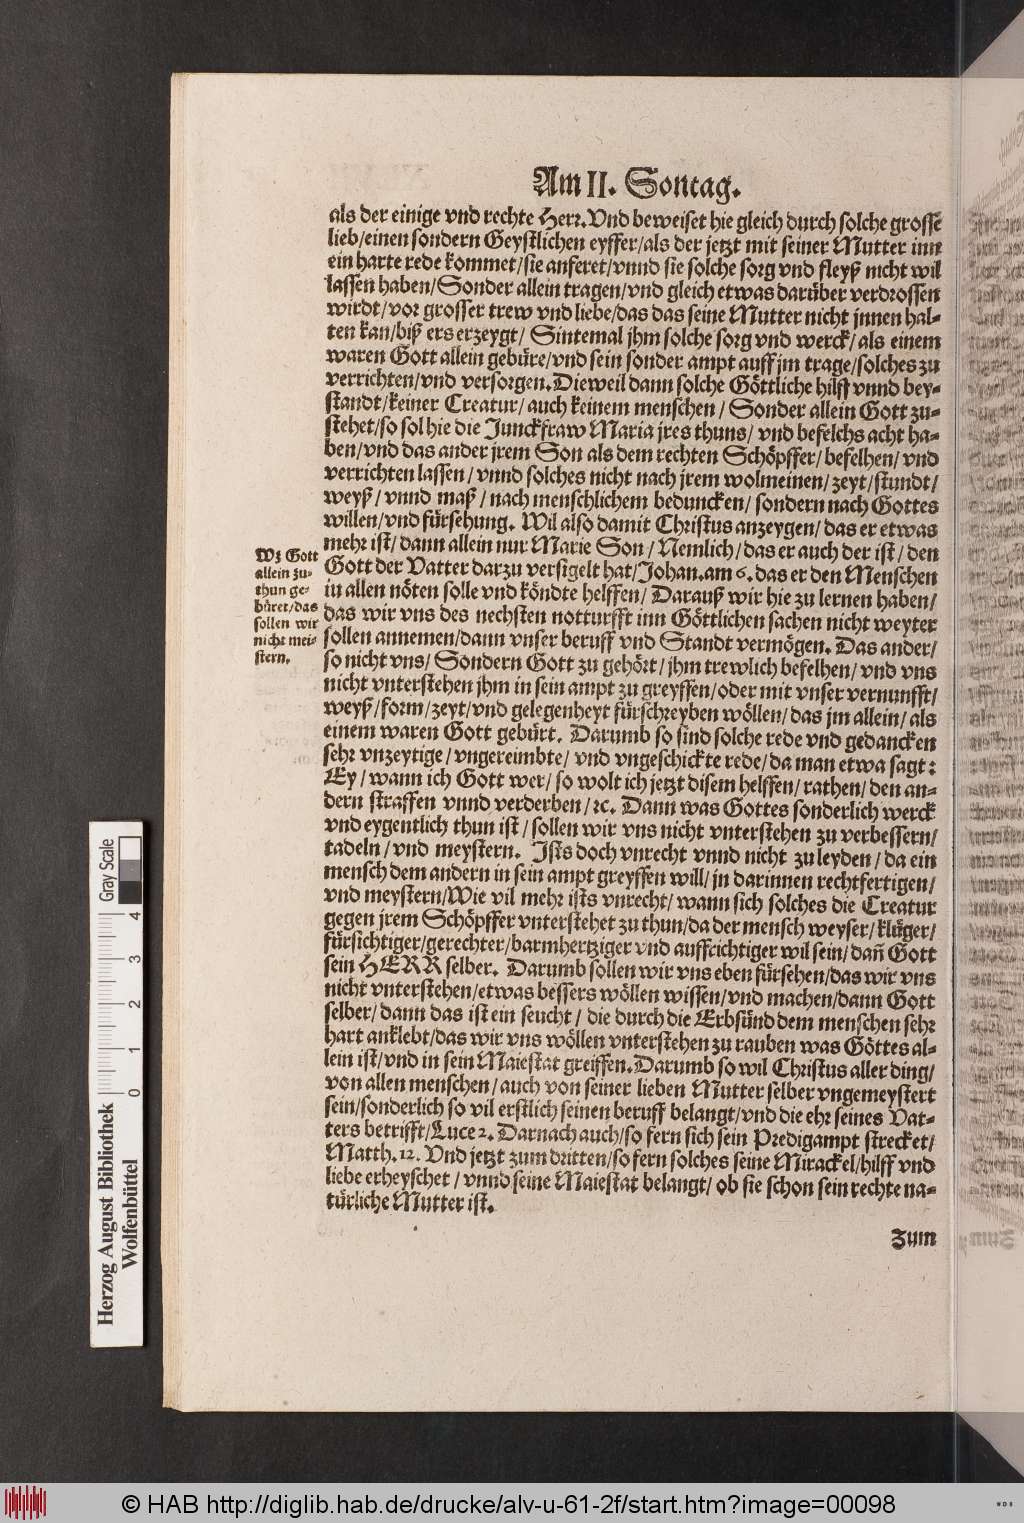 Am II. Sontag.
als der einige vnd rechte Herr. Vnd beweiset hie gleich durch solche grosse
lieb/einen sondern Geystlichen eyffer/als der jetzt mit seiner Mutter inn
ein harte rede kommet/sie anferet/vnnd sie solche sorg vnd fleyß nicht wil
lassen haben/Sonder allein tragen/vnd gleich etwas darüber verdrossen
wirdt/vor grosser trew vnd liebe/das das seine Mutter nicht jnnen hal-
ten kan/biß ers erzeygt/ Sintemal jhm solche sorg vnd werck/als einem
waren Gott allein gebüre/vnd sein sonder ampt auff jm trage/solches zu
verrichten/vnd versorgen. Dieweil dann solche Göttliche hilff vnnd bey-
standt/keiner Creatur/auch keinem menschen/ Sonder allein Gott zu-
stehet/so sol hie die Junckfraw Maria jres thuns/ vnd befelchs acht ha-
ben/vnd das ander jrem Son als dem rechten Schöpffer/befelhen/vnd
verrichten lassen/vnnd solches nicht nach jrem wolmeinen/zeyt/stundt/
weyß/vnnd maß/nach menschlichem beduncken/sondern nach Gottes
willen/vnd fürsehung. Wil also damit Christus anzeygen/das er etwas
mehr ist/dann allein nur Marie Son/Nemlich/das er auch der ist/den
Gott der Vatter darzu versigelt hat/Johan. am 6. das er den Menschen
in allen nöten solle vnd köndte helffen/ Darauß wir hie zu lernen haben/
das wir vns des nechsten notturfft inn Göttlichen sachen nicht weyter
sollen annemen/dann vnser beruff vnd Standt vermögen. Das ander/
so nicht vns/Sondern Gott zu gehört/jhm trewlich befelhen/vnd vns
nicht vnterstehen jhm in sein ampt zu greyffen/oder mit vnser vernunfft/
weyß/form/zeyt/vnd gelegenheyt fürschreyben wöllen/das jm allein/als
einem waren Gott gebürt. Darumb so sind solche rede vnd gedancken
sehr vnzeytige/vngereimbte/vnd vngeschickte rede/da man etwa sagt:
Ey/wann ich Gott wer/so wolt ich jetzt disem helffen/rathen/den an-
dern straffen vnnd verderben/ꝛc. Dann was Gottes sonderlich werck
vnd eygentlich thun ist/sollen wir vns nicht vnterstehen zu verbessern/
tadeln/vnd meystern. Ists doch vnrecht vnnd nicht zu leyden/da ein
mensch dem andern in sein ampt greyffen will/jn darinnen rechtfertigen/
vnd meystern/Wie vil mehr ists vnrecht/wann sich solches die Creatur
gegen jrem Schöpffer vnterstehet zu thun/da der mensch weyser/klüger/
fürsichtiger/gerechter/barmhertziger vnd auffcichtiger wil sein/dañ Gott
sein HERR selber. Darumb sollen wir vns eben fürsehen/das wir vns
nicht vnterstehen/etwas bessers wöllen wissen/vnd machen/dann Gott
selber/dann das ist ein seucht/die durch die Erbsünd dem menschen sehr
hart anklebt/das wir vns wöllen vnterstehen zu rauben was Göttes al-
lein ist/vnd in sein Maiestat greiffen. Darumb so wil Christus aller ding/
von allen menschen/auch von seiner lieben Mutter selber vngemeystert
sein/sonderlich so vil erstlich seinen beruff belangt/vnd die ehr seines Vat-
ters betrifft/Luce 2. Darnach auch/so fern sich sein Predigampt strecket/
Matth. 12. Vnd jetzt zum dritten/so fern solches seine Mirackel/hilff vnd
liebe erheyschet/vnnd seine Maiestat belangt/ob sie schon sein rechte na-
türliche Mutter ist.
Zum
Wz Gott
allein zu-
thun ge-
büret/das
sollen wir
nicht mei-
stern.
Herzog August Bibliothek
Wolfenbüttel
0 1 2 3 4
Gray Scale
© HAB http://diglib.hab.de/drucke/alv-u-61-2f/start.htm?image=00098